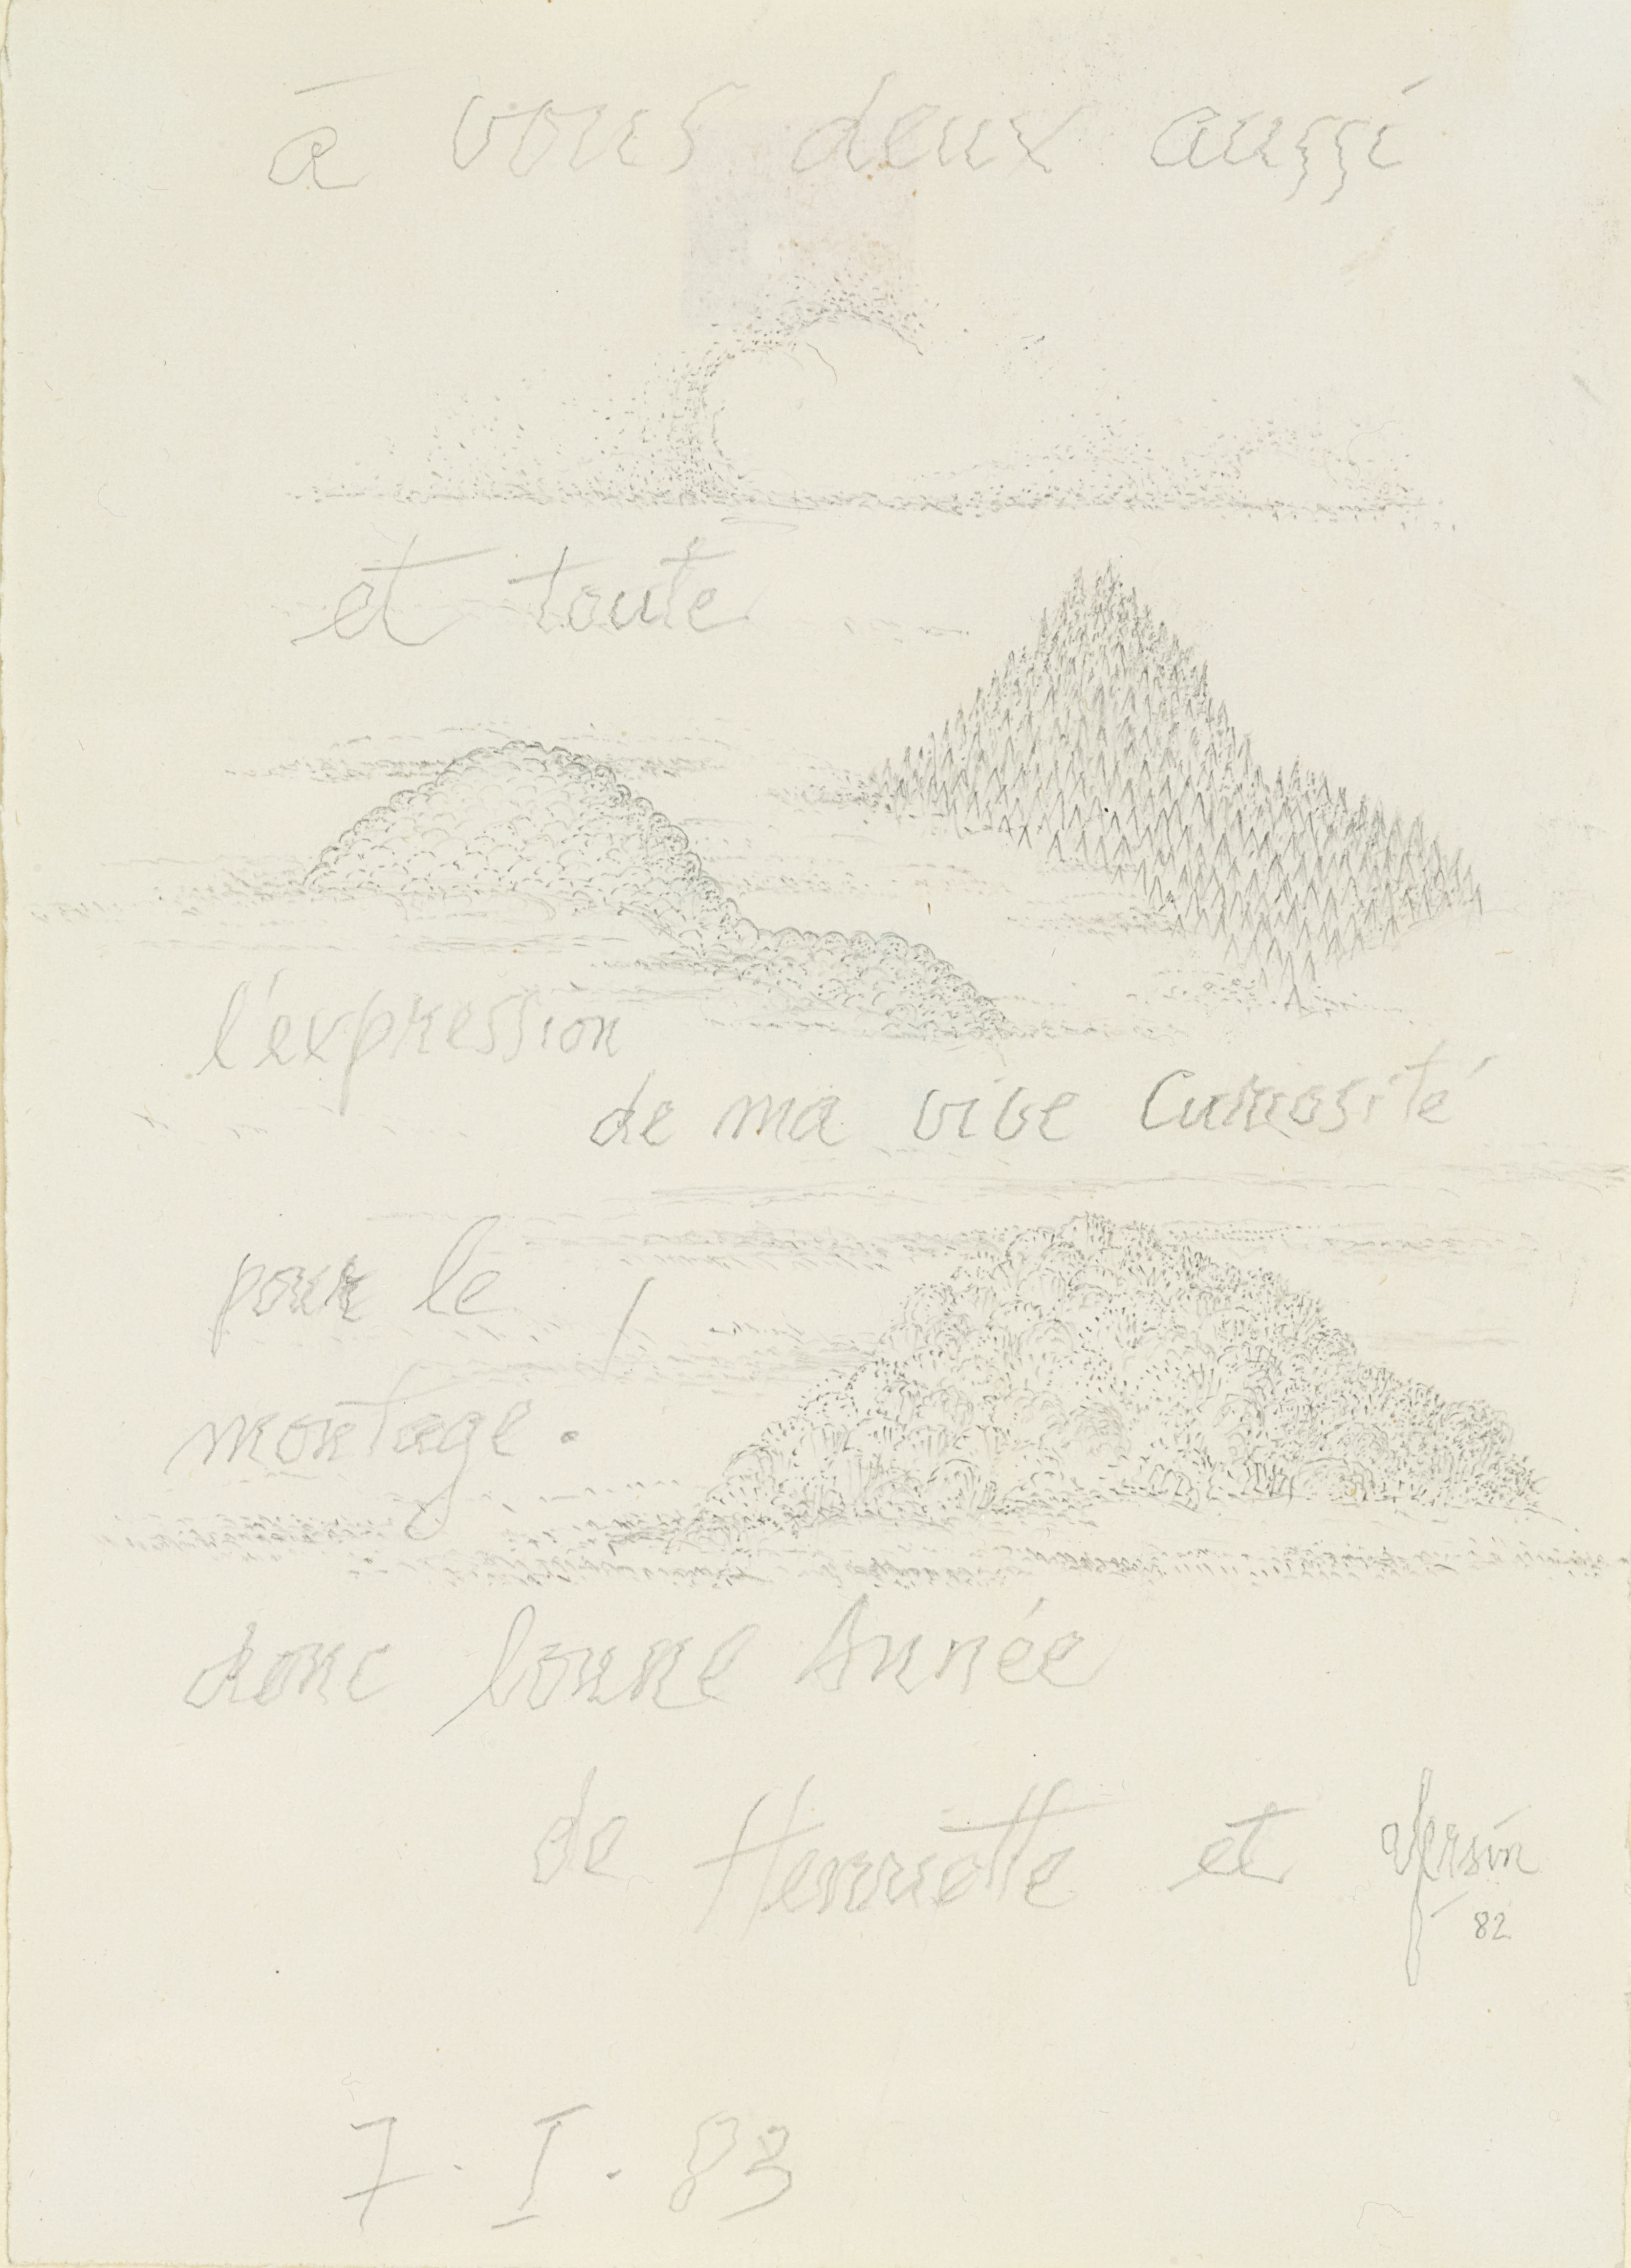 à vous deux aussi
et toute
l'expression
de ma vive Curiosité
pour le
montage.
donc bonne Année
de Henriette et
82
7. I. 83